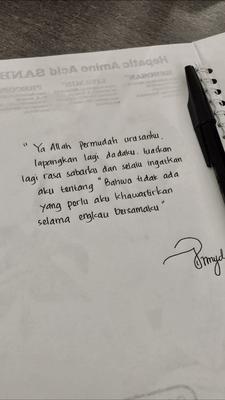 " Ya Allah Permudah urusanku,
lapangkan lagi dadaku, luaskan
lagi rasa sabarku dan selalu ingatkan
aku tentang "Bahwa tidak ada
yang perlu aku khawatirkan
selama engkau bersamaku"